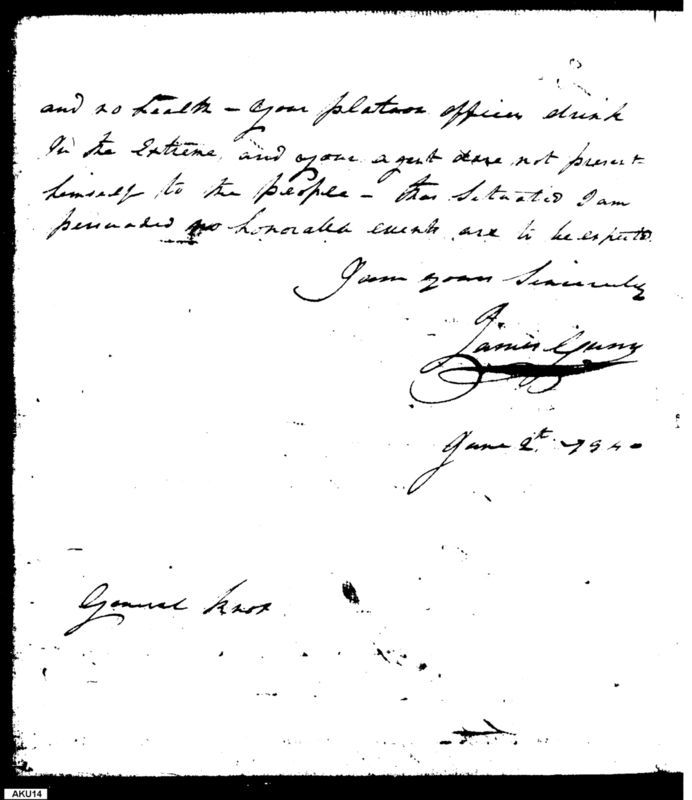 and no health – your platoon officers drink
In the Extreme, and your agent dare not present
himself to the people – thus Situated I am
persuaded no honorable events are to be expected
I am yours Sincerely
James Gunn
June 2th 794
General Knox
AKU14